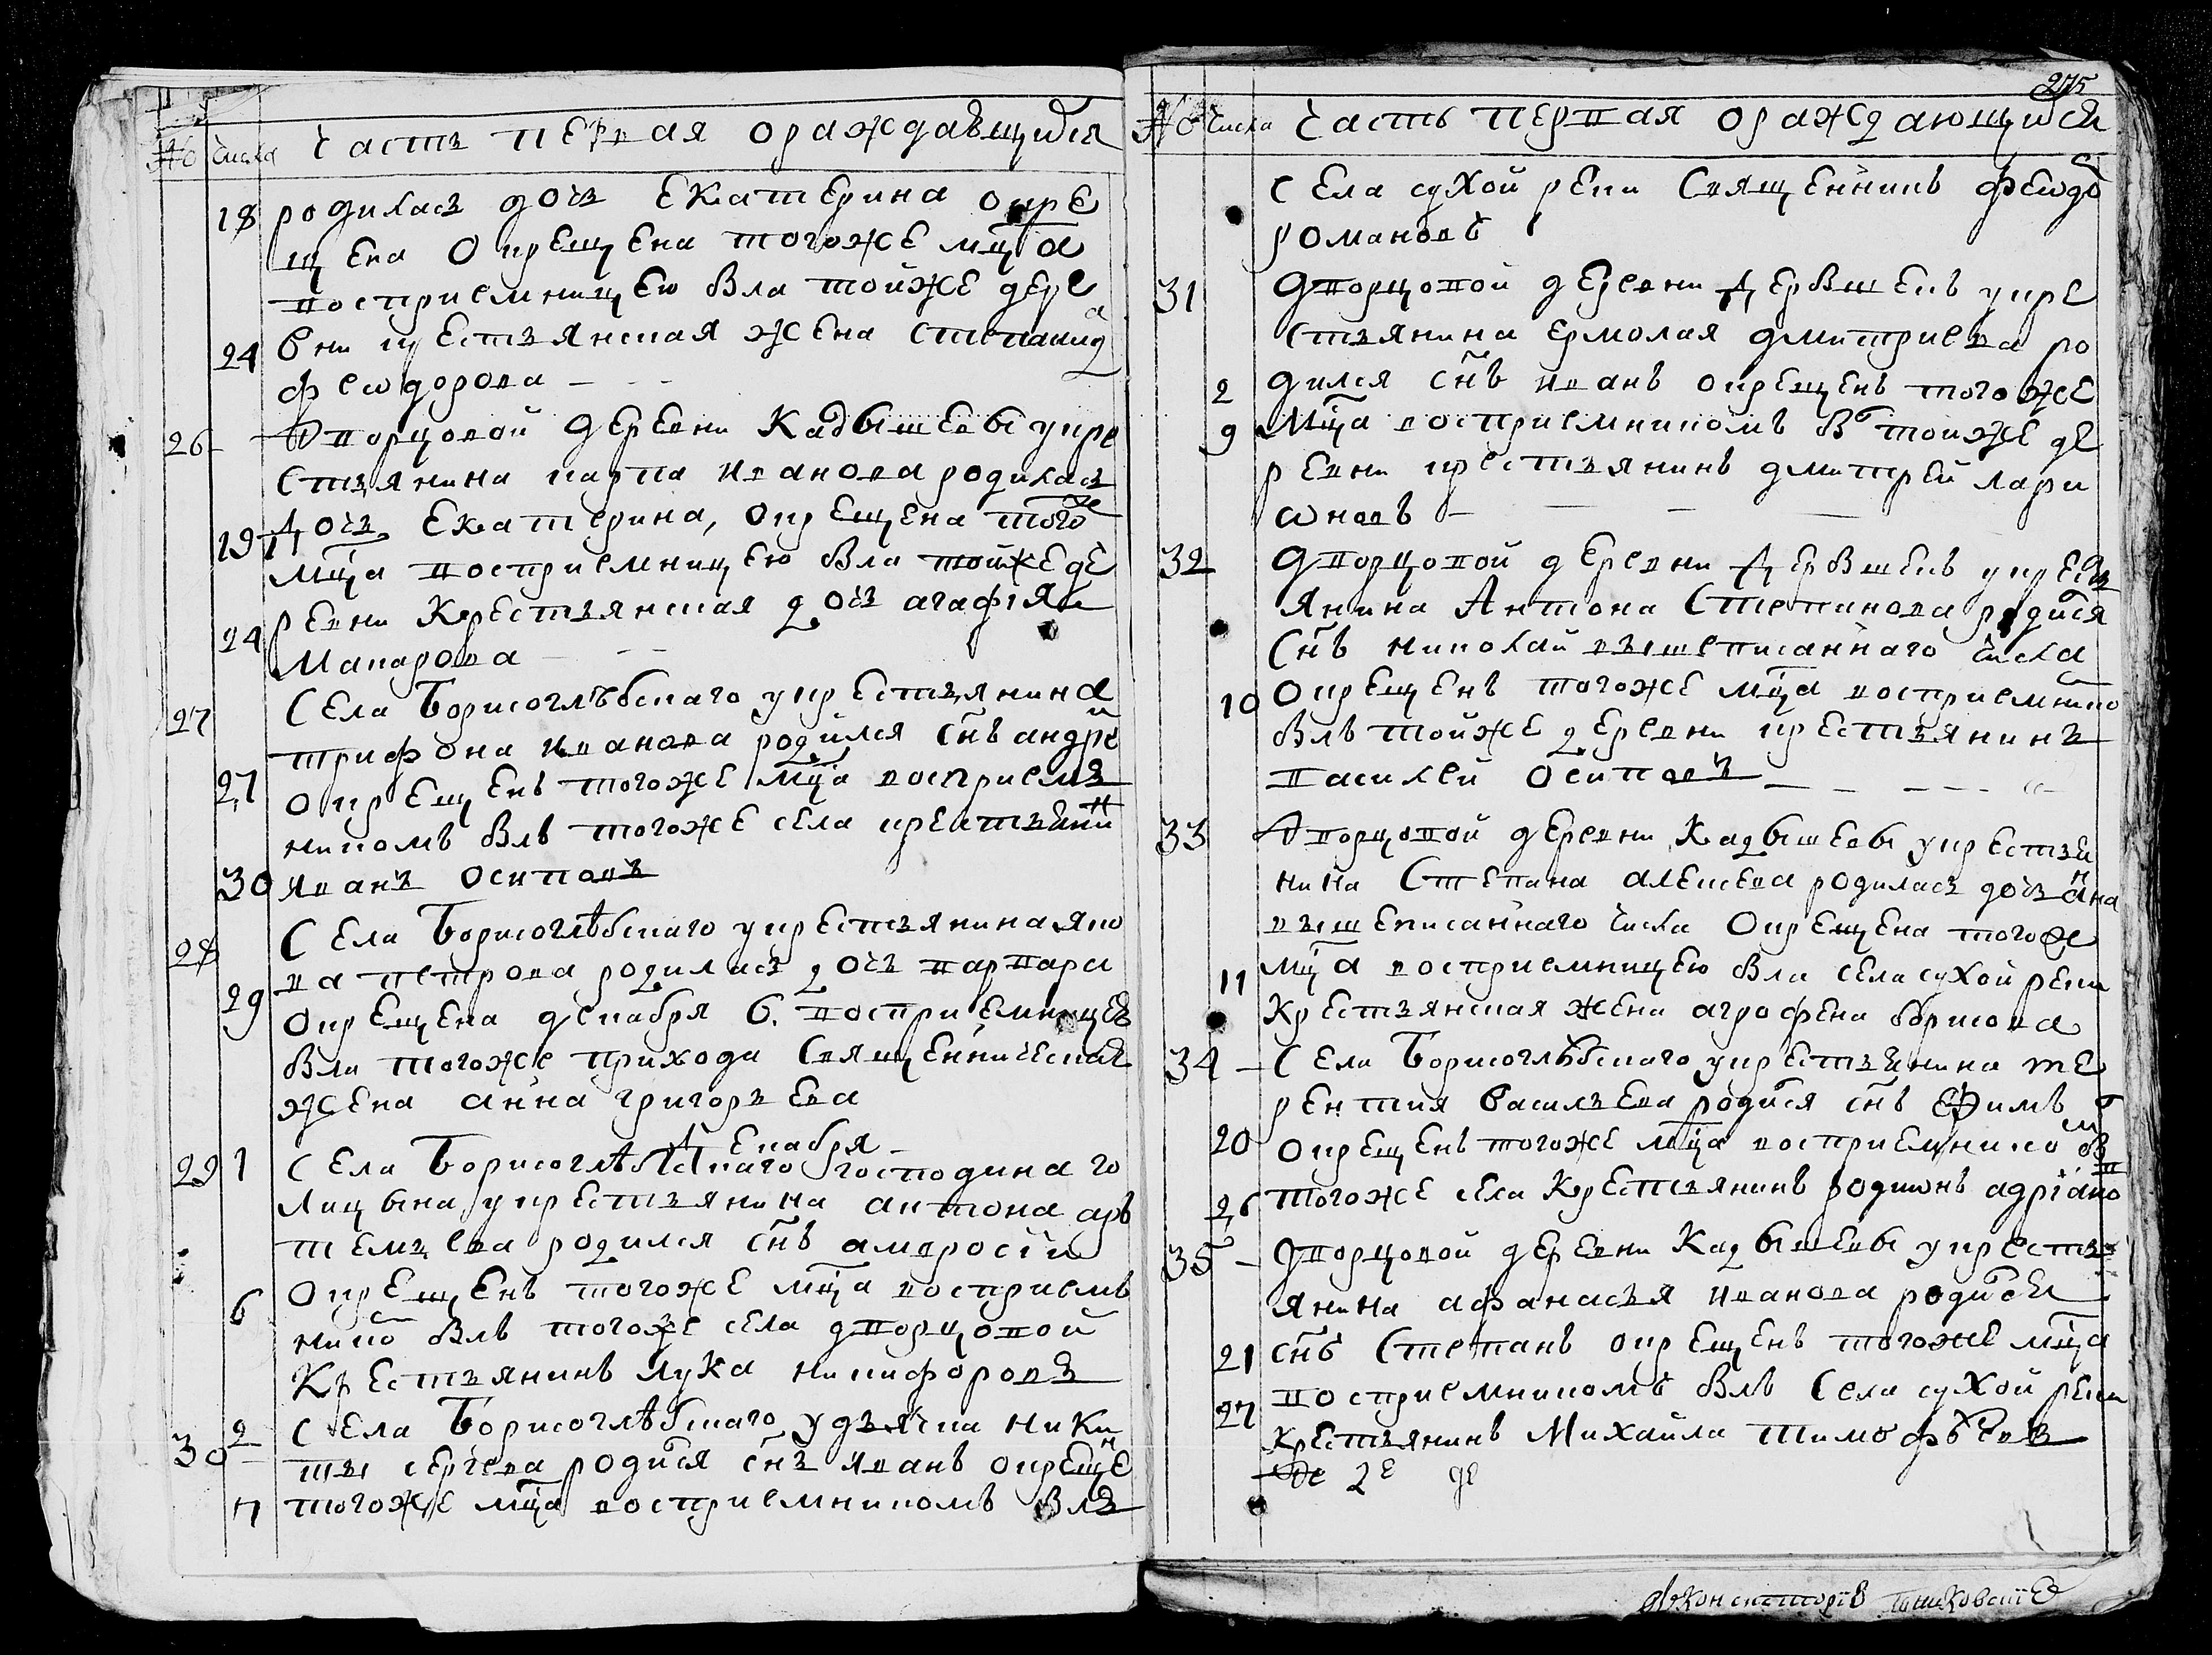 № числа Часть первая ораждающихся
18 родилась дочь Екатерина окре
щена Окрещена тогоже мца
восприемницею была тойже дере
24 вни крестьянская жена степанида
феѡдорова
26 Дворцовой деревни Кадышевы укре
стьянина карпа Иванова родилась
19 дочь Екатерина, окрещена тогоже
мца восприемницею была тойже де
24 ревни Крестьянская дочь агафія
Макарова
27 Села Борисоглѣбскаго укрестьянина
трифона Иванова родился снъ андрей
27 окрещенъ тогоже мца восприемъ
никомъ былъ тогоже села крестьянинъ
30 Иванъ осиповъ
28 Села Борисоглѣбскаго укрестьянина яко
29 ва петрова родилась дочь варвара
окрещена декабря 6. восприемницею
была тогоже прихода Священническая
жена анна григорьева
Декабря
29 1 Села Борисоглѣбскаго господина го
лицына укрестьянина антона арь
темьева родился снъ амвросіи
6 Окрещенъ тогоже мца восприемъ
нико былъ тогоже села дворцовой
Крестьянинъ лука никифоровъ
30 2 Села Борисоглѣбскаго удьячка ники
ты сергѣева родися снъ иванъ окрещенъ
7 тогоже мца восприемникомъ былъ
275
№ числа Часть первая ораждающихся
Села сухой реки Священникъ феѡдоръ
романовъ
31 Дворцовой деревни Дербышекъ укре
стьянина ермолая дмитриева ро
2 дился снъ иванъ окрещенъ тогоже
9 мца восприемникомъ б тоиже де
ревни крестьянинъ дмитрей лари
ѡновъ
32 Дворцовой деревни Дербышекъ укресть
янина Антона Степанова родися
снъ николай вышеписаннаго числа
10 окрещенъ тогоже мца восприемнико
былъ тойже деревни крестьянинъ
василей осиповъ
33 Дворцовой деревни Кадышевы укрестья
нина Степана алексеева родилась дочь анна
вышеписаннаго числа Окрещена тогоже
11 мца восприемницею была села сухой реки
Крестьянская жена агрофена борисова
34 Села Борисоглѣбскаго укрестьянина те
рентия васильева родися снъ Ефимъ
20 окрещенъ тогоже мца восприемником бы
26 тогоже села Крестьянинъ родиѡнъ адріано
35 Дворцовой деревни Кадышевы укресть
янина афанасья иванова родися
21 снъ Степанъ окрещенъ тогоже мца
27 восприемникомъ былъ Села сухой реки
крестьянинъ Михаила тимофѣевъ
де де